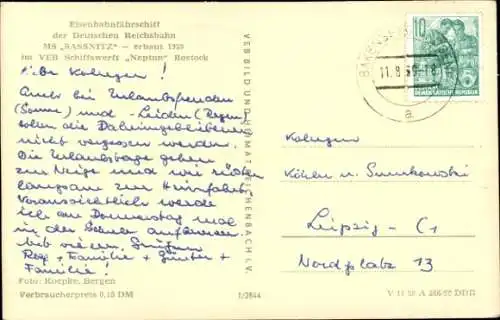 Eisenbahnfährschiff
der Deutschen Reichsbahn
MS „SASSNITZ" — erbaut 1959
im VEB Schiffswerft „Neptun" Rostock
Liebe Kollegen!
Auch bei Urlaubsfreuden
(Sonne) und -Leiden (Regen)
sollen die Daheimgebliebenen
nicht vergessen werden.
Die Urlaubstage gehen
zur Neige und wir rüsten
langsam zur Heimfahrt.
Voraussichtlich werde
ich am Donnerstag mal
in der Schule auftauchen.
Mit vielen Grüßen
+ Familie + Günter +
Familie!
Foto: Koepke, Bergen
Verbraucherpreis 0,10 DM
VEB BILD UND HEIMAT REICHENBACH I. V.
1/2844
10
DEUTSCHE DEMOKRATISCHE REPUBLIK
11.8.
a
Kollegen
Köhler u. Sumkowski
Leipzig - C1
Nordplatz 13
V 11 28 A 266/60 DDR